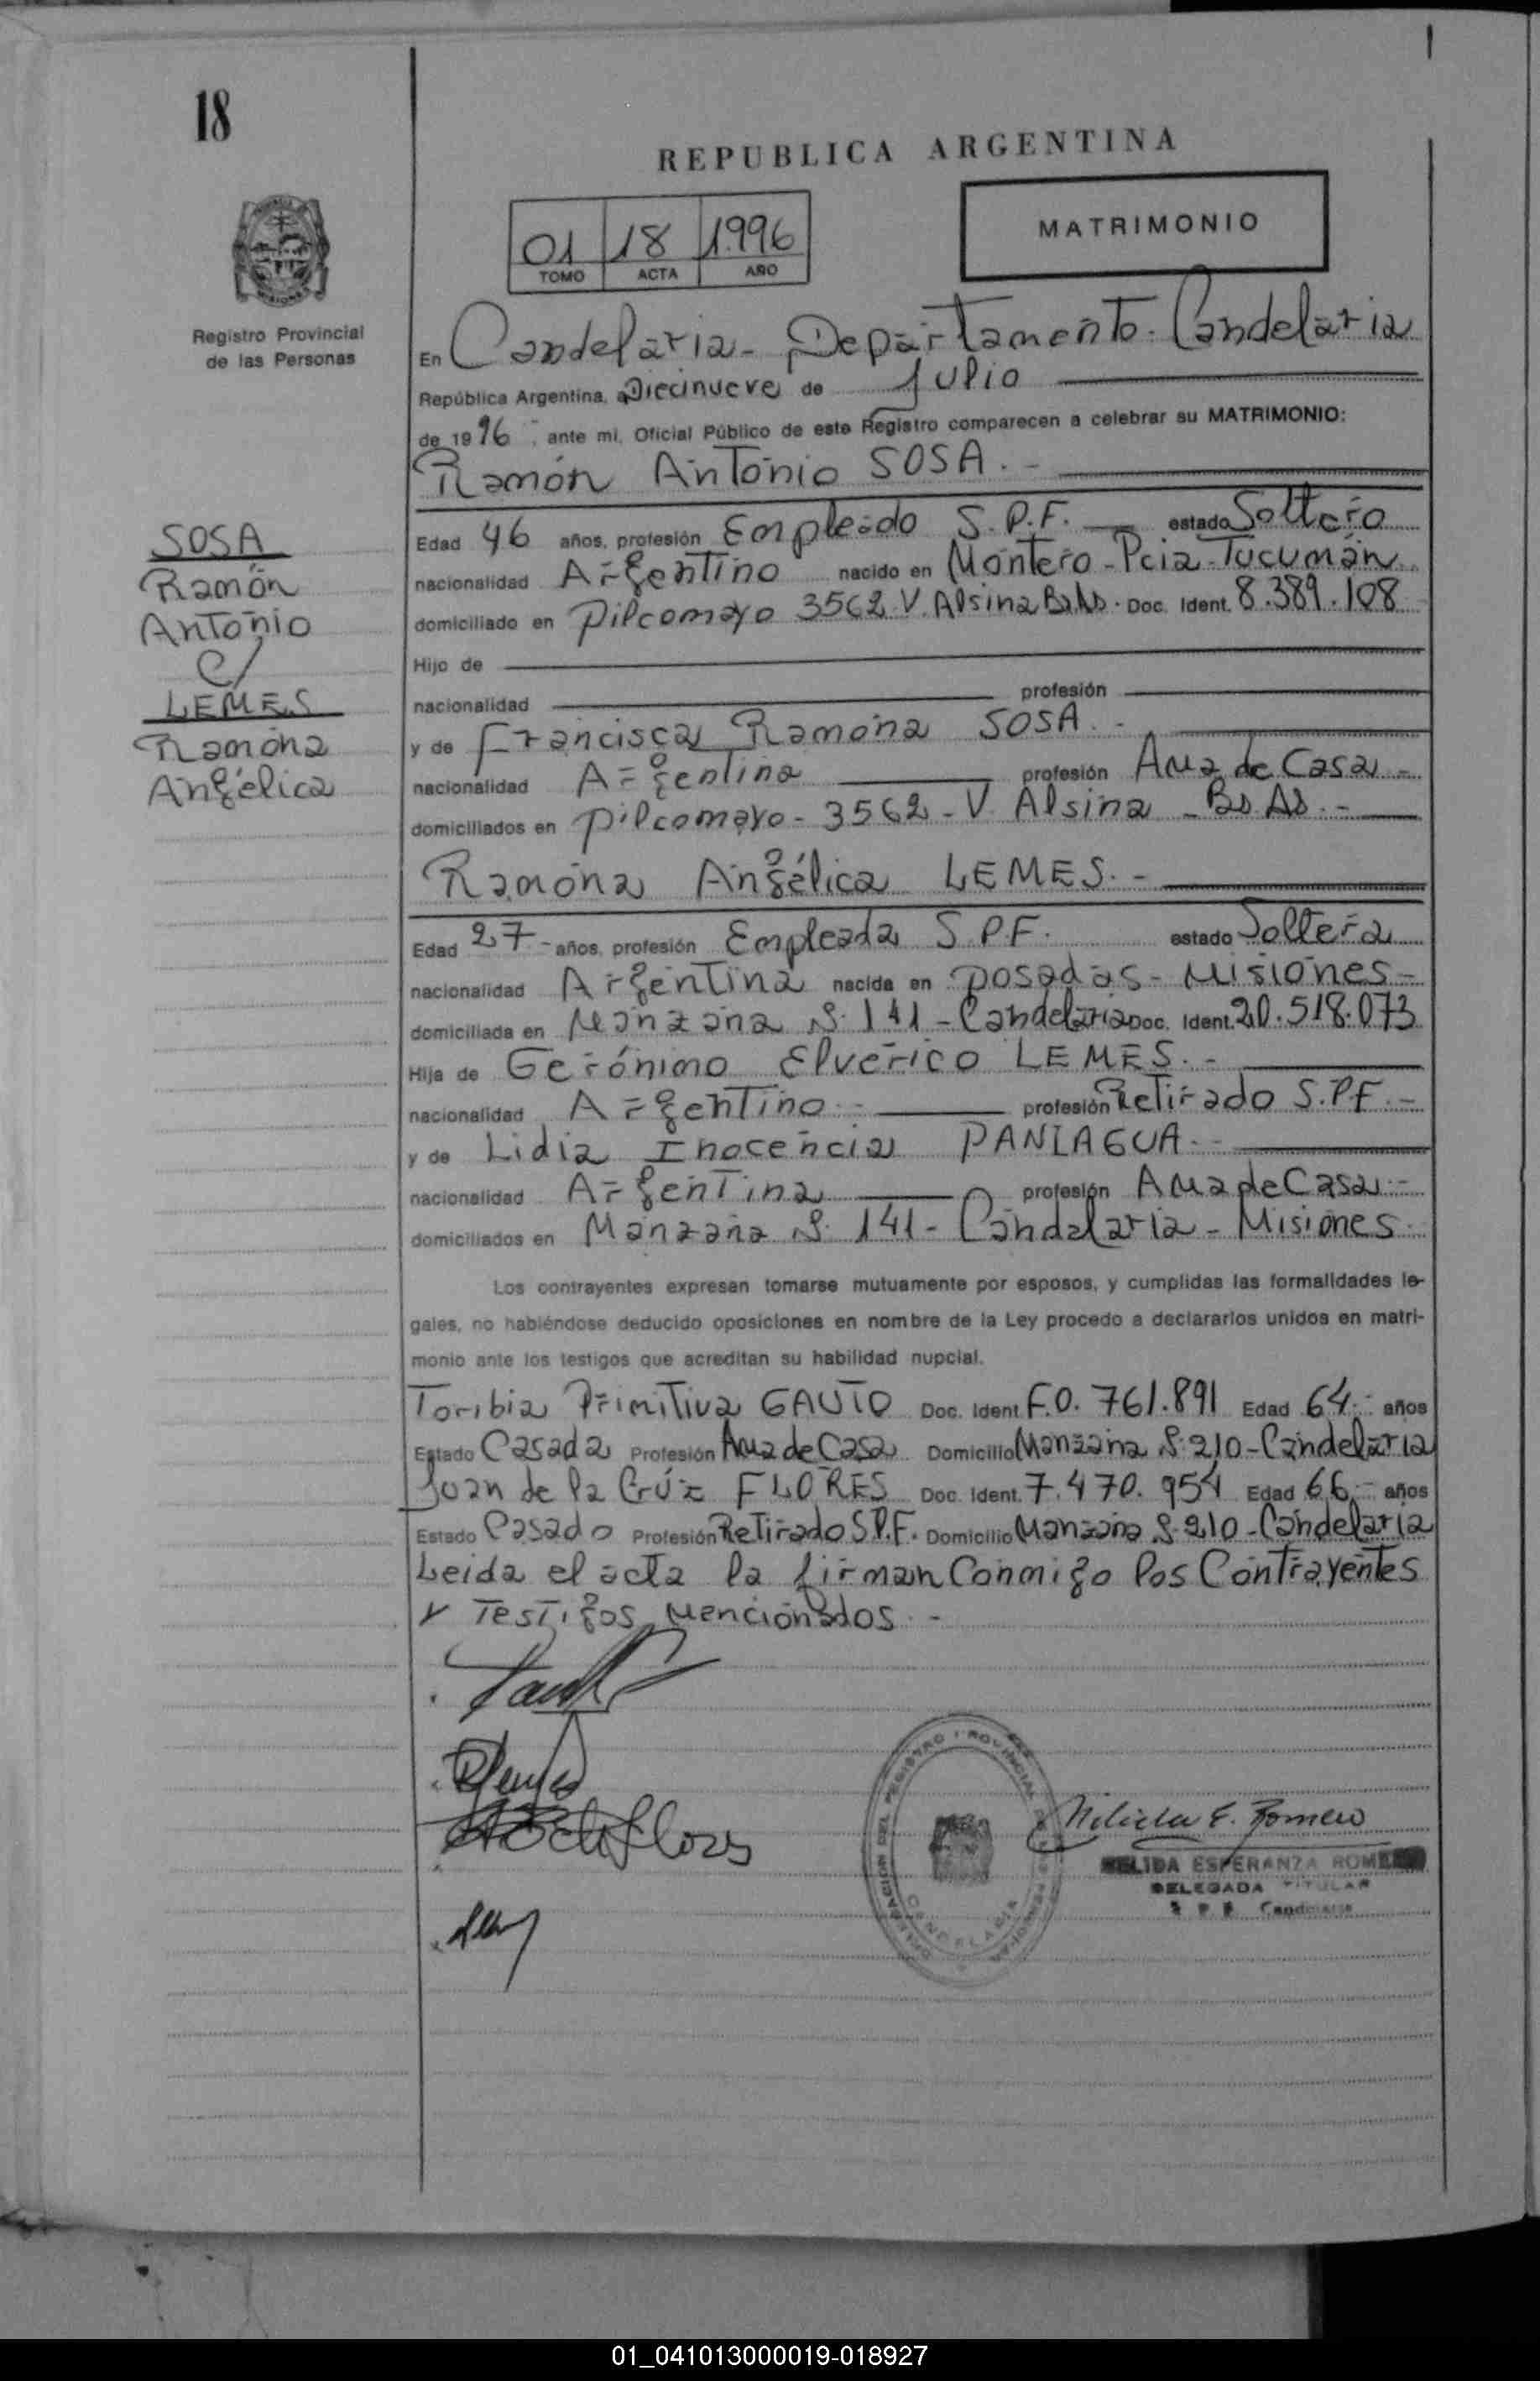 18
REPUBLICA ARGENTINA
01 18 1996
TOMO ACTA AÑO
MATRIMONIO
MISIONES
Registro Provincial
de las Personas
En Candelaria - Departamento - Candelaria
República Argentina, a Diecinueve de Julio
de 1996 - ante mi, Oficial Público de este Registro comparecen a celebrar su MATRIMONIO:
Ramón Antonio SOSA. -
SOSA
Ramón
Antonio
c/
LEMES
Ramona
Angélica
Edad 46 años, profesión Empleado S.P.F. estado Soltero
nacionalidad Argentino nacido en Montero - Pcia - Tucumán
domiciliado en Pilcomayo 3562 V. Alsina Bs As. Doc. Ident. 8.389.108
Hijo de
nacionalidad profesión
y de Francisca Ramona SOSA. -
nacionalidad Argentina profesión Ama de Casa -
domiciliados en Pilcomayo - 3562 - V. Alsina - Bs. As. -
Ramona Angélica LEMES. -
Edad 27 - años, profesión Empleada S.P.F. estado Soltera
nacionalidad Argentina nacida en Posadas - Misiones -
domiciliada en Manzana S. 141 - Candelaria Doc. Ident. 20.518.073
Hija de Gerónimo Elverico LEMES. -
nacionalidad Argentino - profesión Retirado S.P.F. -
y de Lidia Inocencia PANIAGUA. -
nacionalidad Argentina profesión Ama de Casa -
domiciliados en Manzana S. 141 - Candelaria - Misiones.
Los contrayentes expresan tomarse mutuamente por esposos, y cumplidas las formalidades le-
gales, no habiéndose deducido oposiciones en nombre de la Ley procedo a declararlos unidos en matri-
monio ante los testigos que acreditan su habilidad nupcial.
Toribia Primitiva GAUTO Doc. Ident. F.0.761.891 Edad 64.- años
Estado Casada Profesión Ama de Casa Domicilio Manzana S. 210 - Candelaria
Juan de la Crúz FLORES Doc. Ident. 7.470.954 Edad 66.- años
Estado Casado Profesión Retirado S.P.F. Domicilio Manzana S. 210 - Candelaria
Leida el acta la firman Conmigo los Contrayentes
y Testigos Mencionados. -
CANDELARIA
E. Romero
ESPERANZA ROMERO
DELEGADA TITULAR
Candelaria
01_041013000019-018927